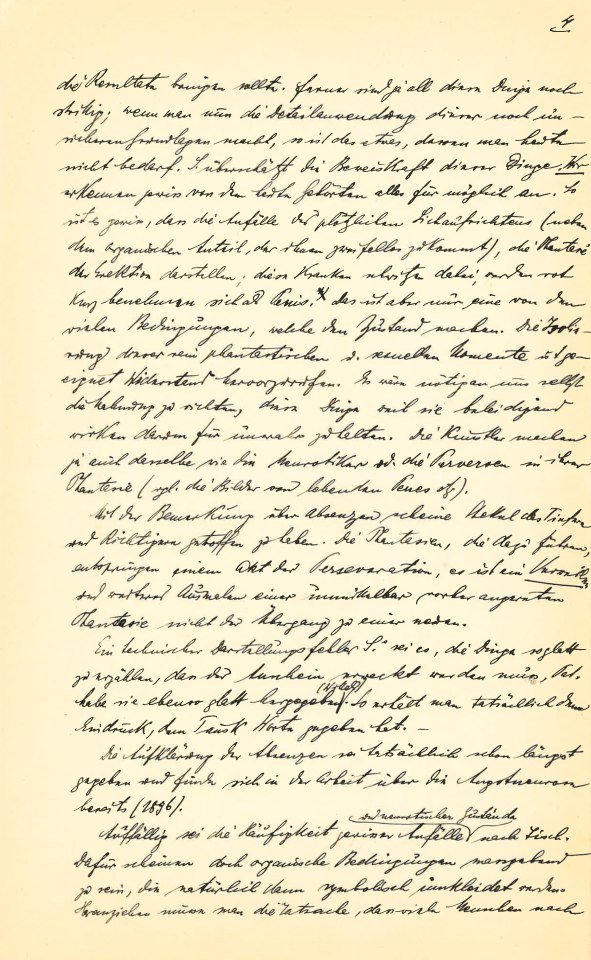 4
die Resultate bringen sollte. Ferner sind ja all diese Dinge noch
strittig; wenn man nun die Detailanwendung dieser noch un-
sicheren Grundlagen macht, so ist das etwas, dessen man heute
nicht bedarf. S. überschätzt die Beweiskraft dieser Dinge. Wir
erkennen gewiss von dem heute Gehörten alles für möglich an. So
ist es gewiss, dass die Anfälle des plötzlichen Sichaufrichtens (neben
dem organischen Anteil, der ihnen zweifellos zukommt), die Phantasie
der Erektion darstellen; diese Kranken dabei, werden rot
kurz benehmen sich als Penis. das ist aber nur eine von den
vielen Bedingungen, welche den Zustand machen. Die Isolie-
rung dieser rein phantastischen u. sexuellen Momente ist ge-
eignet Widerstand hervorzurufen. Es wäre nötigen uns selbst
die Mahnung zu richten, diese Dinge weil sie beleidigend
wirken darum für unwahr zu halten. Die Künstler machen
ja auch dasselbe wie die Neurotiker od. die Perversen in ihrer
Phantasie (vgl. die Bilder von lebenden Penes etc.).
Mit der Bemerkung über Absenzen scheine Stekel das Tiefere
und Richtigere getroffen zu haben. Die Phantasien, die dazu führen,
entspringen einem Akt der Perseveration, es ist ein
und weiteres Ausmalen einer unmittelbar vorher angeregten
Phantasie nicht der Übergang zu einer neuen.
Ein technischer Darstellungsfehler S.'s sei es, die Dinge so glatt
zu erzählen, dass der Anschein erweckt werden muss, Pat.
habe sie ebenso glatt hergegeben. So erhält man tatsächlich den
Eindruck, dem Tausk Worte gegeben hat. –
Die Aufklärung der Absenzen sei tatsächlich schon längst
gegeben und finde sich in der Arbeit über die Angstneurose
bereits (1896).
und neurotischer Zustände
Auffällig sei die Häufigkeit gewisser Anfälle nach Tisch.
Dafür scheinen doch organische Bedingungen massgebend
zu sein, die natürlich dann symbolisch umkleidet werden.
Heranziehen müsse man die Tatsache, dass viele Menschen nach